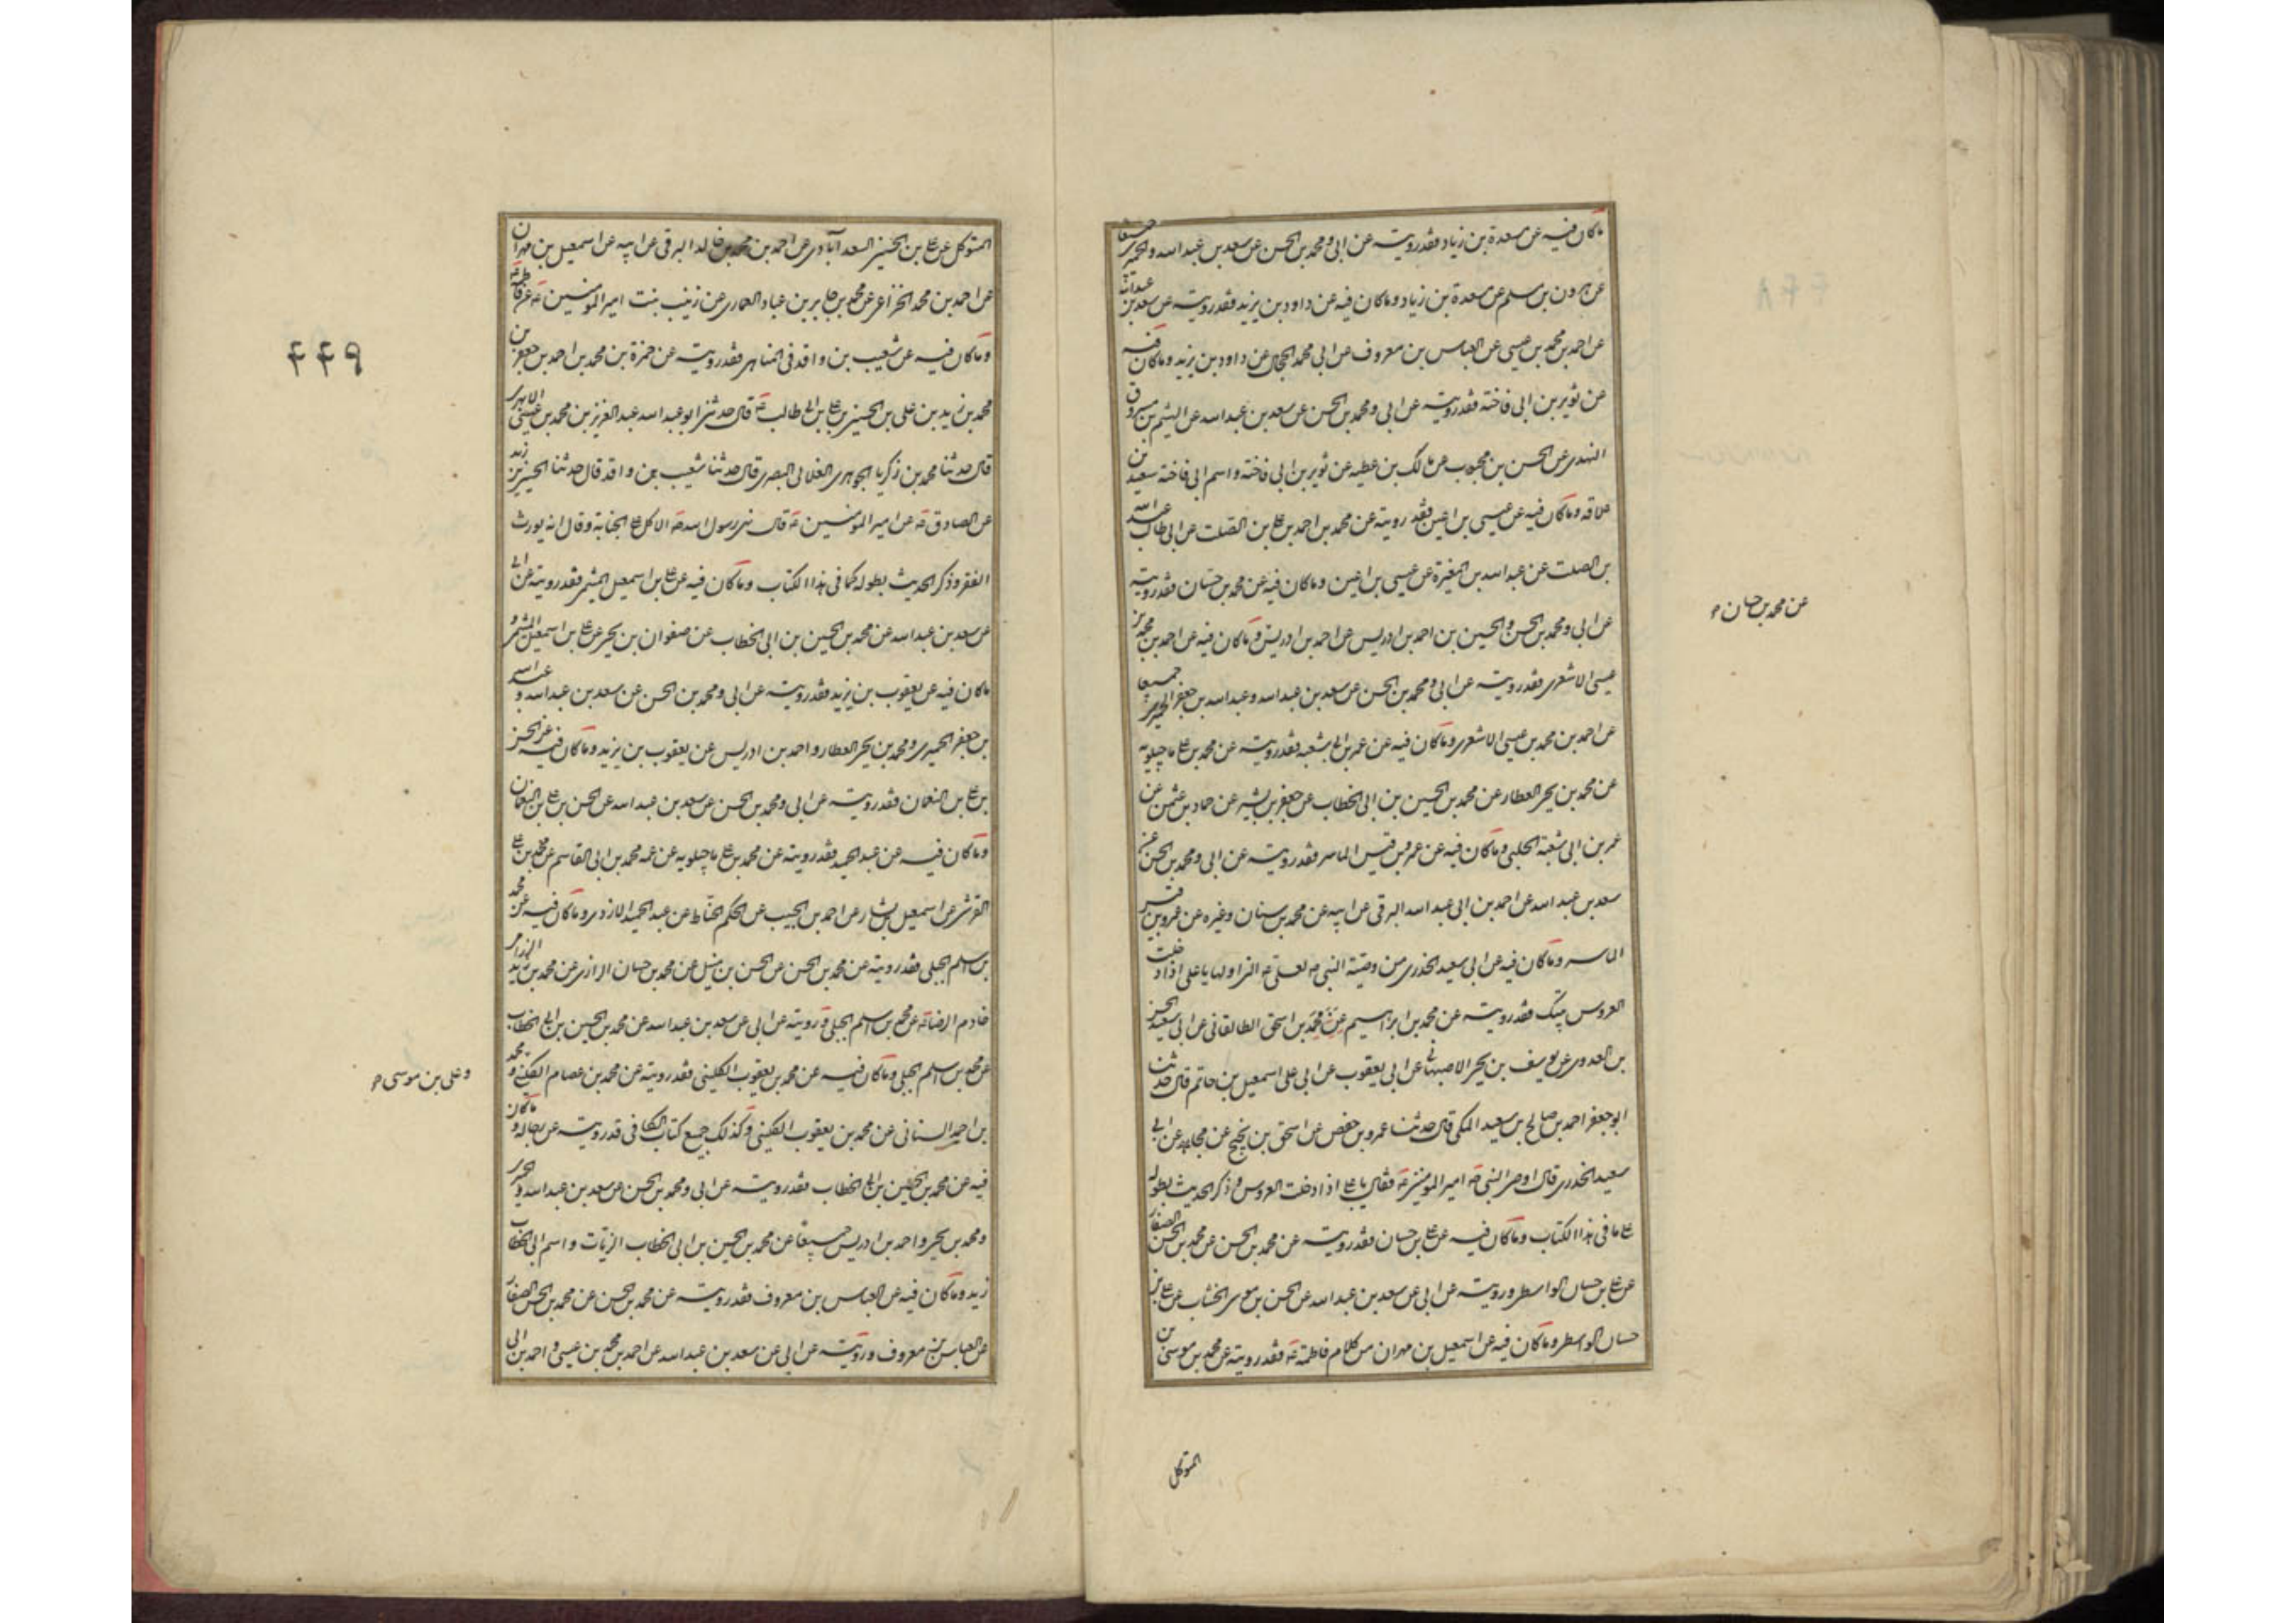 ما كان فيه عن مسعدة بن زياد فقد رويته عن ابي و محمد بن الحسن عن سعد بن عبد الله و الحميري جميعا
عن هرون بن مسلم عن مسعدة بن زياد و ما كان فيه عن داود بن يزيد فقد رويته عن سعد بن عبد الله
عن احمد بن محمد بن عيسى عن العباس بن معروف عن ابي محمد الحجال عن داود بن يزيد و ما كان فيه
عن ثوير بن ابي فاخته فقد رويته عن ابي و محمد بن الحسن عن سعد بن عبد الله عن الهيثم بن مسروق
النهدي عن الحسن بن محبوب عن مالك بن عطيه عن ثوير بن ابي فاخته و اسم ابي فاخته سعيد بن
علاقه و ما كان فيه عن عيسى بن اعين فقد رويته عن محمد بن احمد بن علي بن الصلت عن ابي طالب عبد الله
بن الصلت عن عبد الله بن المغيرة عن عيسى بن اعين و ما كان فيه عن محمد بن حسان فقد رويته
عن ابي و محمد بن الحسن و الحسين بن احمد بن ادريس عن احمد بن ادريس و ما كان فيه عن احمد بن محمد بن
عن محمد بن حسان
عيسى الاشعري فقد رويته عن ابي و محمد بن الحسن عن سعد بن عبد الله و عبد الله بن جعفر الحميري جميعا
عن احمد بن محمد بن عيسى الاشعري و ما كان فيه عن عمر بن ابي شعبه فقد رويته عن محمد بن علي ماجيلويه
عن محمد بن يحيى العطار عن محمد بن الحسين بن ابي الخطاب عن جعفر بن بشير عن حماد بن عثمن عن
عمر بن ابي شعبة الحلبي و ما كان فيه عن عمرو بن قيس الماصر فقد رويته عن ابي و محمد بن الحسن عن
سعد بن عبد الله عن احمد بن ابي عبد الله البرقي عن ابيه عن محمد بن سنان و غيره عن عمرو بن قيس
الماصر و ما كان فيه عن ابي سعيد الخدري من وصية النبي ص لعلي ع التي اولها يا علي اذا دخلت
العروس بيتك فقد رويته عن محمد بن ابراهيم بن اسحق الطالقاني عن ابي سعيد الحسن
بن العدوي عن يوسف بن يحيى الاصبهاني عن ابي يعقوب عن ابي علي اسمعيل بن حاتم قال حدثنا
ابو جعفر احمد بن صالح بن سعيد المكي قال حدثنا عمرو بن حفص عن اسحق بن نجيح عن مجاهد عن ابي
سعيد الخدري قال اوصى النبي ص امير المومنين ع فقال يا علي اذا دخلت العروس و ذكر الحديث بطوله
على ما في هذا الكتاب و ما كان فيه عن علي بن حسان فقد رويته عن محمد بن الحسن عن محمد بن الحسن الصفار
عن علي بن حسان الواسطي و رويته عن ابي عن سعد بن عبد الله عن الحسن بن موسى الخشاب عن علي بن
حسان الواسطي و ما كان فيه عن اسمعيل بن مهران من كلام فاطمة ع فقد رويته عن محمد بن موسى بن
المتوكل
المتوكل عن علي بن الحسين السعد آبادي عن احمد بن محمد بن خالد البرقي عن ابيه عن اسمعيل بن مهران
عن احمد بن محمد الخزاعي عن محمد بن جابر بن عباد العامري عن زينب بنت امير المومنين ع عن فاطمة ع
و ما كان فيه عن شعيب بن واقد في المناهي فقد رويته عن حمزة بن محمد بن احمد بن جعفر بن
۴۴۹
محمد بن زيد بن علي بن الحسين بن علي بن ابي طالب ع قال حدثني ابو عبد الله عبد العزيز بن محمد بن عيسى الابهري
قال حدثنا محمد بن زكريا الجوهري الغلابي البصري قال حدثنا شعيب بن واقد قال حدثنا الحسين بن زيد
عن الصادق ع عن امير المومنين ع قال نهى رسول الله ص الاكل على الجنابة و قال انه يورث
الفقر و ذكر الحديث بطوله كما في هذا الكتاب و ما كان فيه عن علي بن اسمعيل الميثمي فقد رويته عن ابي
عن سعد بن عبد الله عن محمد بن الحسين بن ابي الخطاب عن صفوان بن يحيى عن علي بن اسمعيل الميثمي و
ما كان فيه عن يعقوب بن يزيد فقد رويته عن ابي و محمد بن الحسن عن سعد بن عبد الله و عبد الله
بن جعفر الحميري و محمد بن يحيى العطار و احمد بن ادريس عن يعقوب بن يزيد و ما كان فيه عن الحسن
بن علي بن النعمان فقد رويته عن ابي و محمد بن الحسن عن سعد بن عبد الله عن الحسن بن علي بن النعمان
و ما كان فيه عن عبد الحميد فقد رويته عن محمد بن علي ماجيلويه عن عمه محمد بن ابي القاسم عن محمد بن علي
القرشي عن اسمعيل بن بشار عن احمد بن الحبيب عن الحكم الخناط عن عبد الحميد الازدي و ما كان فيه عن محمد
بن اسلم الجبلي فقد رويته عن محمد بن الحسن عن الحسن بن متيل عن محمد بن حسان الرازي عن محمد بن زيد الرزامي
خادم الرضا ع عن محمد بن اسلم الجبلي و رويته عن ابي عن سعد بن عبد الله عن محمد بن الحسين بن ابي الخطاب
عن محمد بن اسلم الجبلي و ما كان فيه عن محمد بن يعقوب الكليني فقد رويته عن محمد بن عصام الكليني و محمد
و علي بن موسى
بن احمد السناني عن محمد بن يعقوب الكليني و كذلك جميع كتاب الكافي فقد رويته عن رجاله و ما كان
فيه عن محمد بن الحسين بن ابي الخطاب فقد رويته عن ابي و محمد بن الحسن عن سعد بن عبد الله و الحميري
و محمد بن يحيى و احمد بن ادريس جميعا عن محمد بن الحسين بن ابي الخطاب الزيات و اسم ابي الخطاب
زيد و ما كان فيه عن العباس بن معروف فقد رويته عن محمد بن الحسن عن محمد بن الحسن الصفار
عن العباس بن معروف و رويته عن ابي عن سعد بن عبد الله عن احمد بن محمد بن عيسى و احمد بن ابي